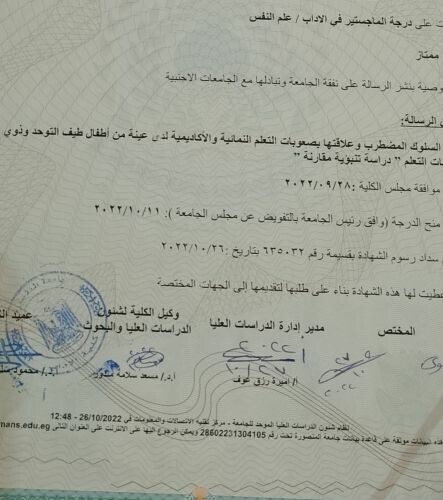 على درجة الماجستير في الاداب / علم النفس
ممتاز
وصية بنشر الرسالة على نفقة الجامعة وتبادلها مع الجامعات الاجنبية
الرسالة:
السلوك المضطرب وعلاقتها بصعوبات التعلم النمائية والأكاديمية لدى عينة من أطفال طيف التوحد وذوي
ات التعلم " دراسة تنبؤية مقارنة "
موافقة مجلس الكلية :٢٠٢٢/٠٩/٢٨
منح الدرجة (وافق رئيس الجامعة بالتفويض عن مجلس الجامعة ): ٢٠٢٢/١٠/١١
سداد رسوم الشهادة بقسيمة رقم ٦٣٥٠٣٢ بتاريخ :٢٠٢٢/١٠/٢٦
عطيت لها هذه الشهادة بناء على طلبها لتقديمها إلى الجهات المختصة
المختص
مدير إدارة الدراسات العليا
وكيل الكلية لشئون
الدراسات العليا والبحوث
عميد
أ/ اميرة رزق عوف
أ.د/ مسعد سلامة مندور
أ.د/ محمود
نظام شئون الدراسات العليا الموحد للجامعة - مركز تقنية الاتصالات والمعلومات في 26/10/2022 - 12:48
هذه البيانات موثقة على قاعدة بيانات جامعة المنصورة تحت رقم 28602231304105 ويمكن الرجوع اليها على الانترنت على العنوان التالى mans.edu.eg